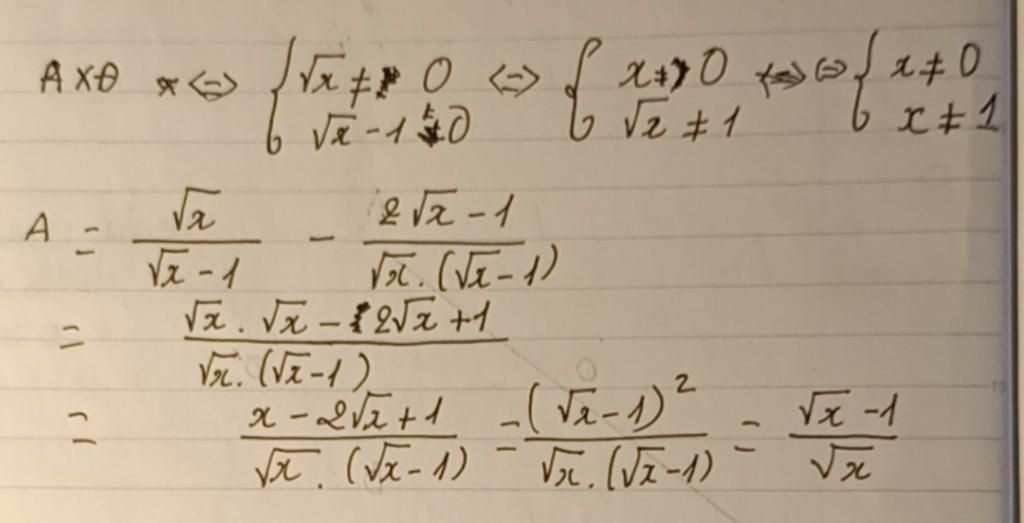 A XĐ ⇔ { √x ≠ 0 ⇔ { x ≠ 0 ⇔ { x ≠ 0
√x - 1 ≠ 0 √x ≠ 1 x ≠ 1
A = √x / (√x - 1) - (2√x - 1) / (√x . (√x - 1))
= (√x . √x - 2√x + 1) / (√x . (√x - 1))
= (x - 2√x + 1) / (√x . (√x - 1)) = (√x - 1)² / (√x . (√x - 1)) = (√x - 1) / √x